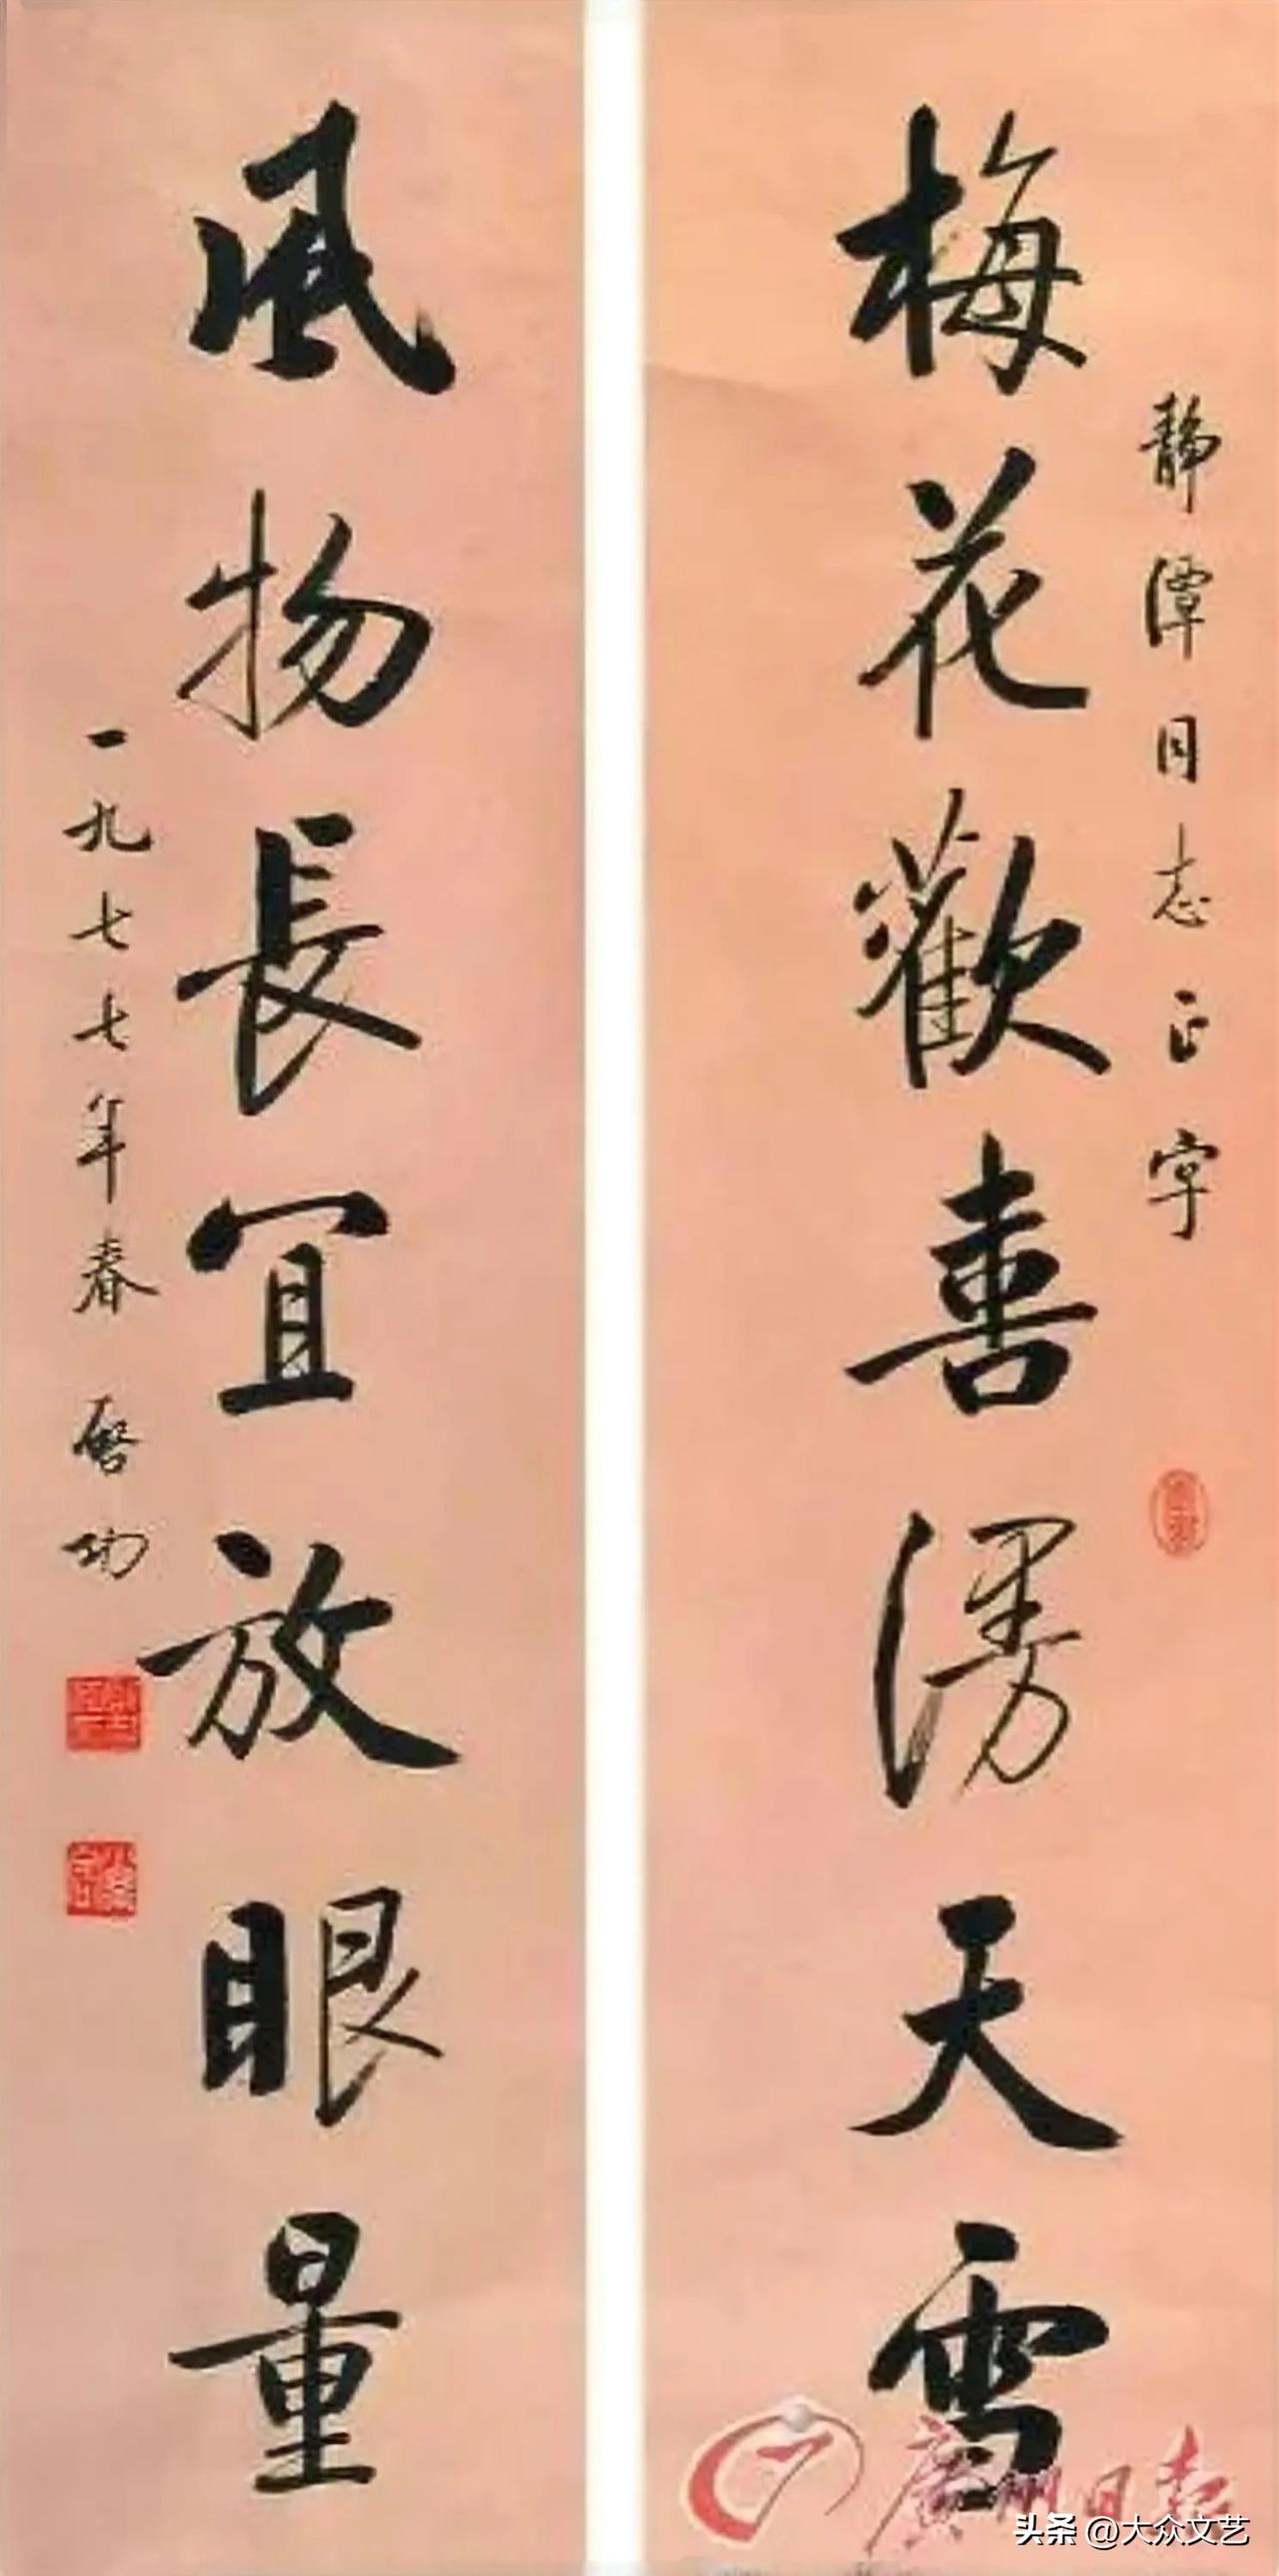 静潭同志正字
梅花歡喜漫天雪
風物長宜放眼量
一九七七年春 啓功
廣州日报
头条 @大众文艺